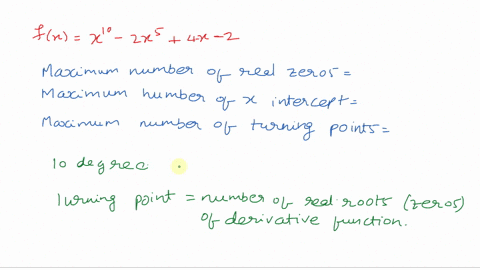 f(x) = x^10 - 2x^5 + 4x - 2
Maximum number of real zeros =
Maximum number of x intercept =
Maximum number of turning points =
10 degree
Turning point = number of real roots (zeros)
of derivative function.